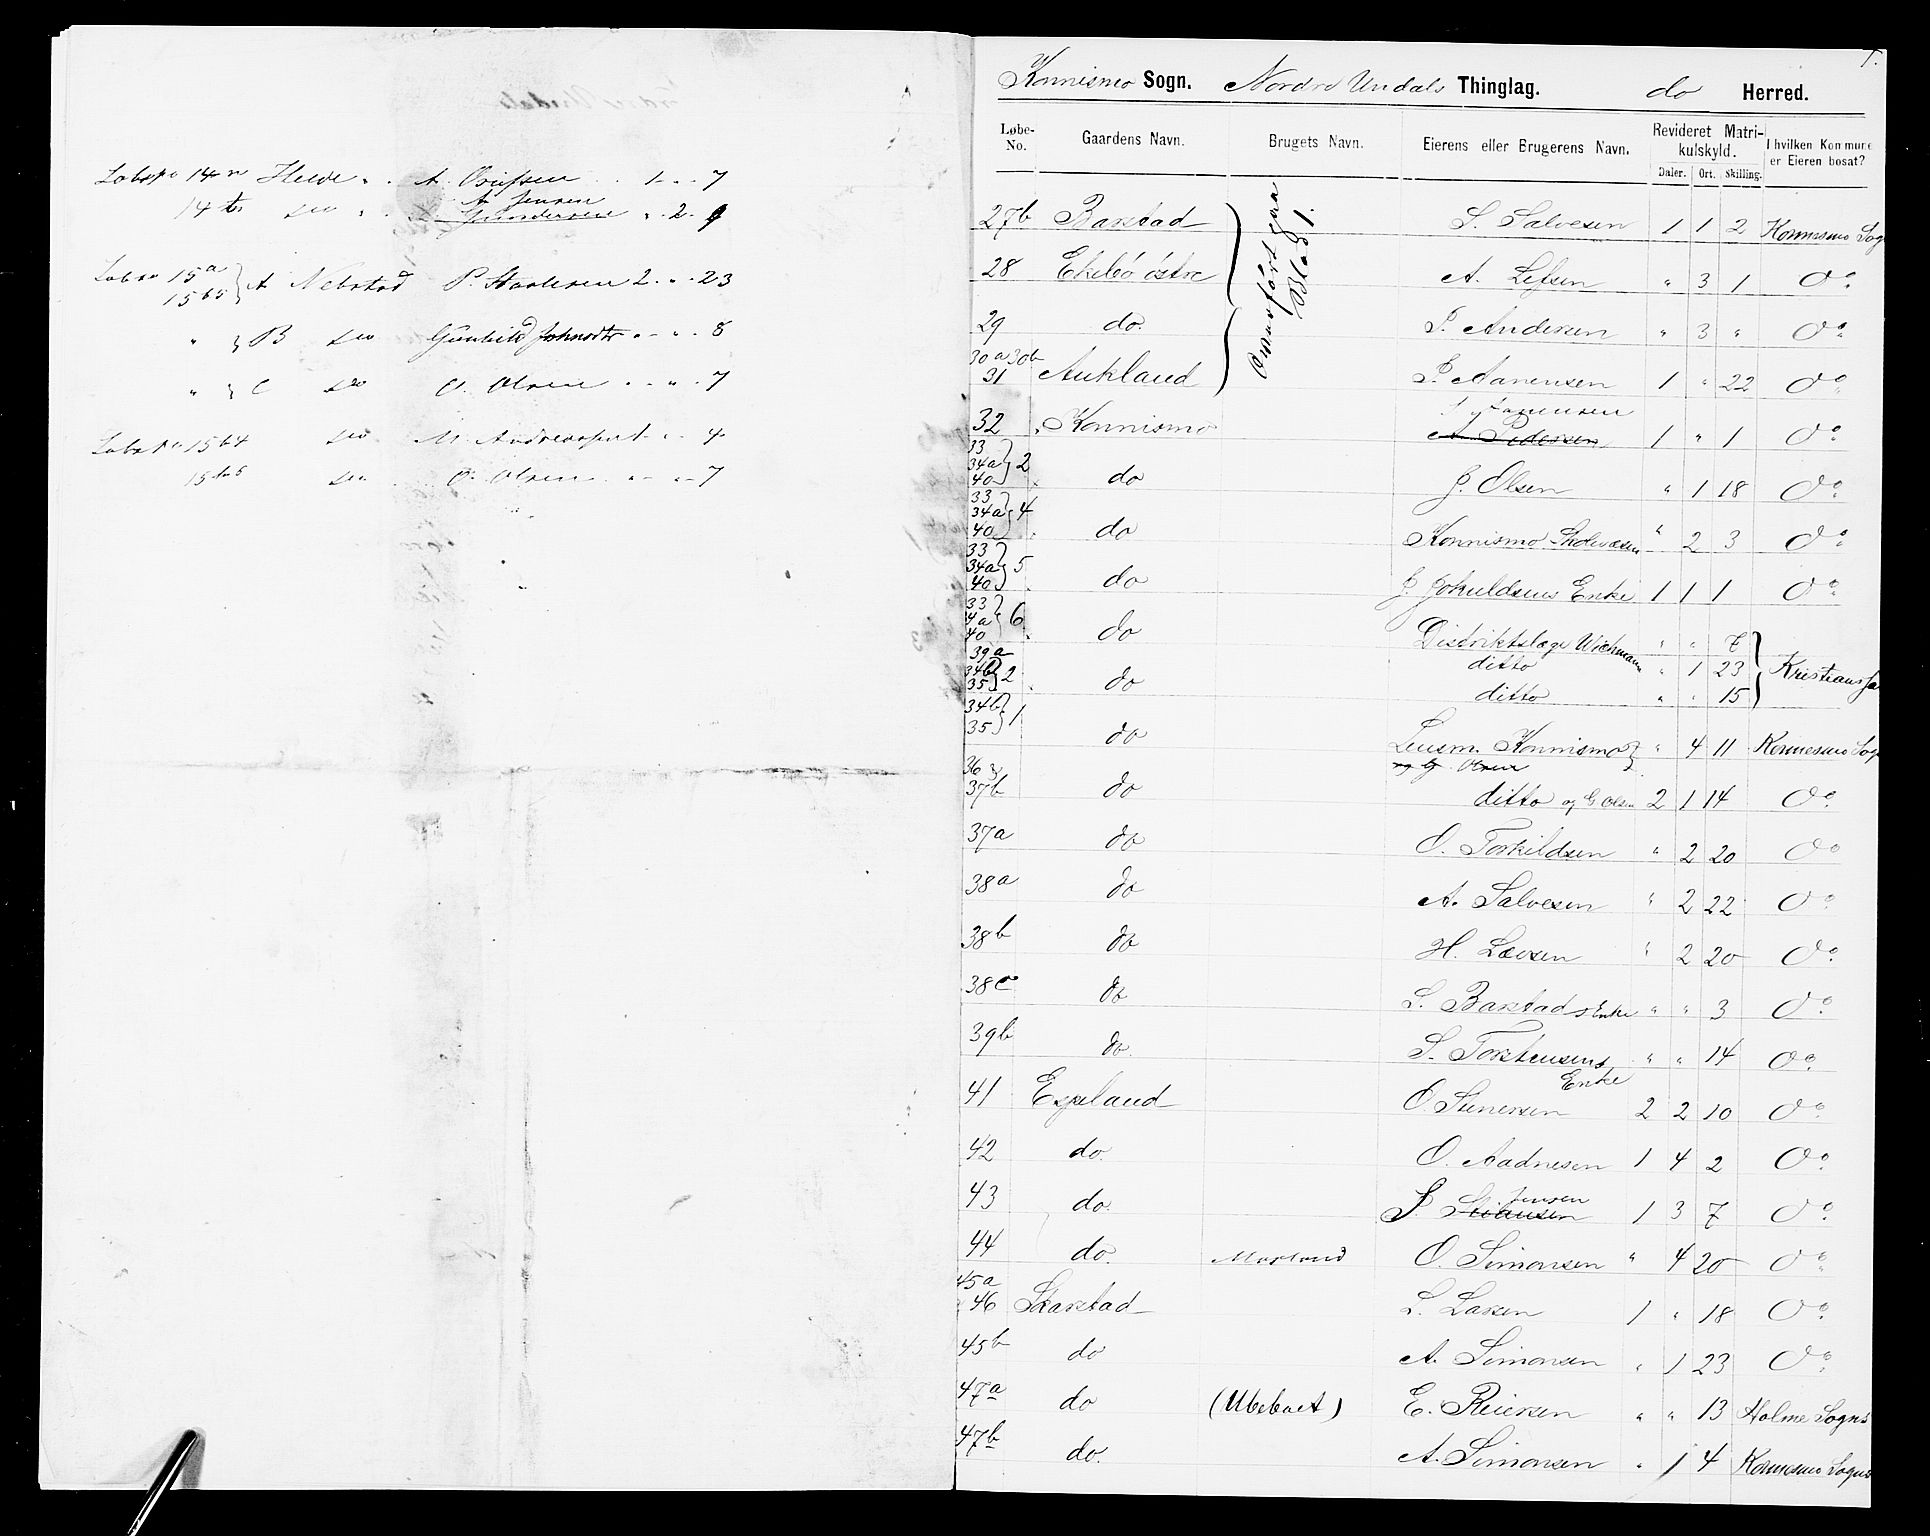 Løbeno 14 Helle " . A. 1 " 7
14 do " . A. Jensen " 2 9
Løbeno 15a 15b5 } A Nebstad P. Staalesen 2 " 23
" } B do Gunhild Johnsdtr " " 8
" } C do O. Olsen " " 7
Løbeno 15b4 do M. " " 4
15b6 do O. Olsen " " 7
1.
Konnismo Sogn. Nordre Undals Thinglag. do Herred.
Løbe-No. Gaardens Navn. Brugets Navn. Eierens eller Brugerens Navn. Revideret Matrikulskyld. I hvilken Kommune er Eieren bosat?
Daler. Ort. Skilling.
Omanført paa Blad 1.
27b Barstad S. Salvesen 1 1 2 Konnesmo Sogn
28 Ekebö östre A. Lefsen " 3 1 Do
29 do. P. Andersen " 3 " Do
30a 30b 31 Aukland P. Aanensen 1 " 22 Do
32 Konnismo A. Pedersen 1 " 1 Do
33 34a 40 } 2 do J. Olsen " 1 18 Do
33 34a 40 } 4 do Konnismo Skolevæsen " 2 3 Do
33 34a 40 } 5 do J. Jokuldsens Enke 1 1 1 Do
33 4a 40 } 6 do Distriktslæge Wichmann " " 7 } Kristianssa
39a 34b 35 } 2 do ditto " 1 23
ditto " " 15
34b 35 } 1 do Lensm. Konnismo " 4 11 Konnesmo Sogn
og G. Olsen
36 37b do ditto og G. Olsen 2 1 14 Do
37a do O. Torkildsen " 2 20 Do
38a do A. Salvesen " 2 22 Do
38b do H. Lævsen " 2 20 Do
38c do S. Barstads Enke " " 3 Do
39b do. S. Torstensens Enke " " 14 Do
41 Espeland O. Sunersen 2 2 10 Do
42 do. O. Aadnesen 1 4 2 Do
43 do. P. Jensen 1 3 7 Do
44 do. Morland O. Simonsen " 4 20 Do
45a 46 Skarstad L. Larsen 1 " 18 Do
45b do A. Simonsen " 1 23 Do
47a do (Ubeboet) E. Reiersen " " 13 Holme Sogns
47b do. A. Simonsen " 1 4 Konnesmo Sogns